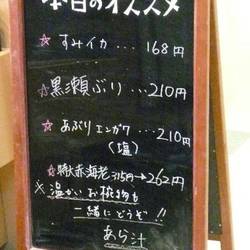 本日のオススメ
☆すみイカ…168円
☆黒瀬ぶり…210円
☆あぶりエンガワ…210円
(塩)
☆特大赤海老315円→262円
※温かいお椀物も
一緒にどうぞ!!
あら汁